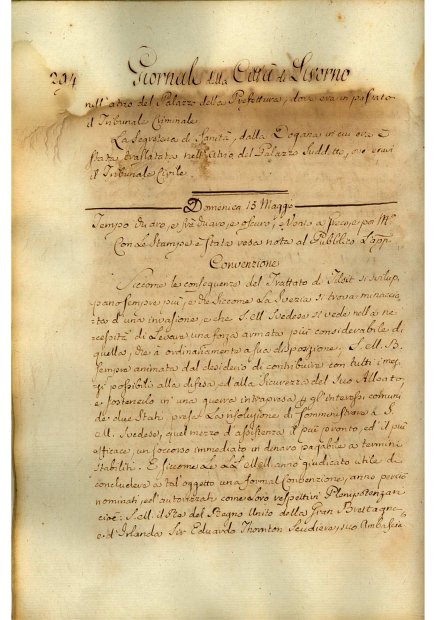 294 Giornale della Città di Livorno
nell'atrio del Palazzo della Prefettura, dove era in passato
il Tribunale Criminale.
La Segreteria di Sanità, dalla Dogana in cui era è
stata traslatata nell'Atrio del Palazzo Suddetto, ove eravi
il Tribunale Civile.
Domenica 15 Maggio
Tempo chiaro, e chiaro, e oscuro, Vento a
Con le Stampe è stata resa nota al Pubblico l'app.
Convenzione
Siccome le conseguenze del Trattato di Tilsit si svilup=
pano sempre più, e che siccome la Svezia si trova minaccia=
ta d'una invasione, e che S. M. Svedese si vede nella ne=
cessità di levare una forza armata più considerabile di
quella, che à ordinariamente a sua disposizione; S. M. B.
sempre animata dal desiderio di contribuire con tutti i mez=
zi possibili alla difesa ed alla Sicurezza del Suo Alleato,
e sostenerlo in una guerra intrapresa p gl'interessi comuni
de due Stati presa la risoluzione di somministrare à S.
M. Svedese, quel mezzo d'assistenza il più pronto, ed il più
efficace, un soccorso immediato in denaro pagabile a termini
stabiliti. E siccome le LL. MM. anno giudicato utile di
concludere a tal oggetto una formal Convenzione, anno perciò
nominati, ed autorizzati come loro respettivi Plenipotenziari
cioè: S. M. il Re del Regno Unito della Gran Brettagna
e d'Irlanda Sir Eduardo Thornton Scudiere, suo Ambascia=